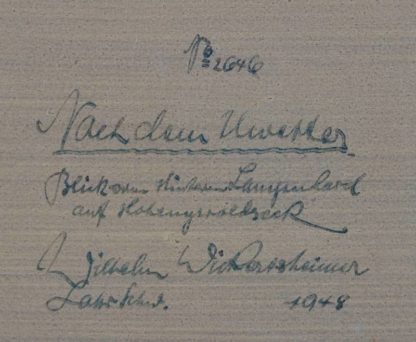 № 2646
Nach dem Unwetter
Blick vom Hinteren Langenhard
auf Hohengeroldseck
Wilhelm Wickertsheimer
Lahr Schw. 1948